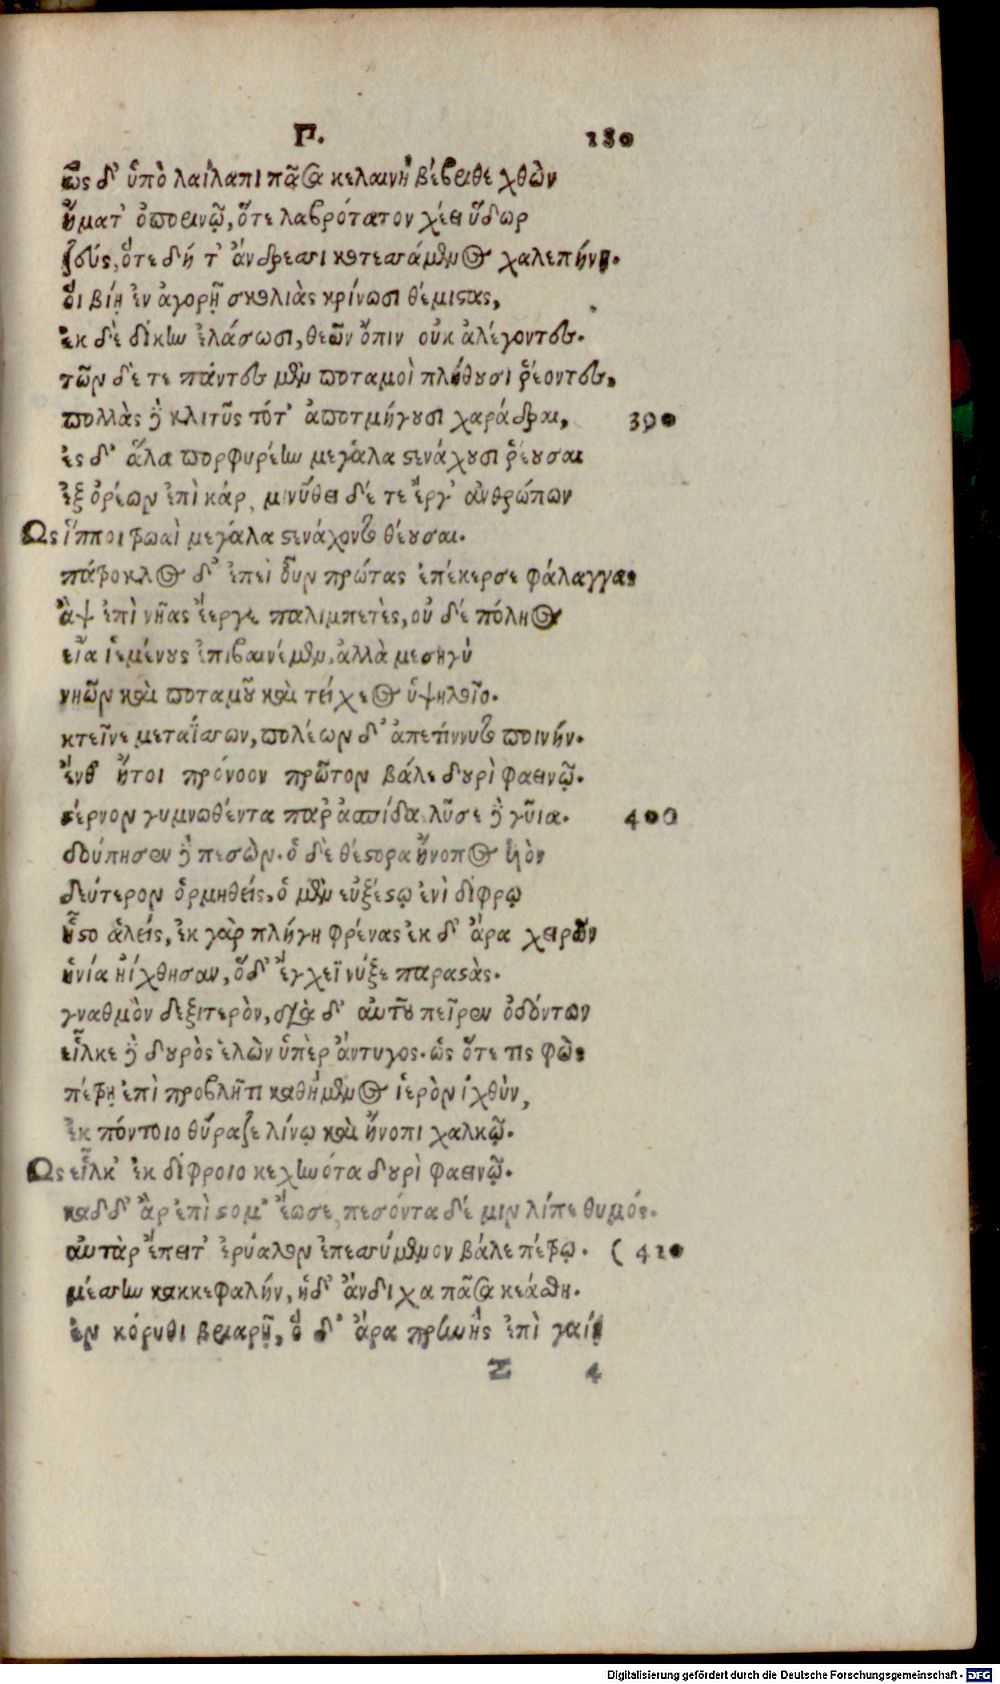 Π. 180
ὣς δ' ὑπὸ λαίλαπι πᾶσα κελαινὴ βέβριθε χθὼν
ἤματ' ὀπωρινῷ, ὅτε λαβρότατον χέει ὕδωρ
ζεύς, ὅτε δή τ' ἄνδρεσσι κοτεσσάμενος χαλεπήνῃ.
οἳ βίῃ ἐν ἀγορῇ σκολιὰς κρίνωσι θέμιστας,
ἐκ δὲ δίκην ἐλάσωσι, θεῶν ὄπιν οὐκ ἀλέγοντες.
τῶν δέ τε πάντες μὲν ποταμοὶ πλήθουσι ῥέοντες,
πολλὰς δὲ κλιτῦς τότ' ἀποτμήγουσι χαράδραι, 390
ἐς δ' ἅλα πορφυρέην μεγάλα στενάχουσι ῥέουσαι
ἐξ ὀρέων ἐπὶ κάρ, μινύθει δέ τε ἔργ' ἀνθρώπων
Ως ἵπποι τρωαὶ μεγάλα στενάχοντο θέουσαι.
πάτροκλος δ' ἐπεὶ οὖν πρώτας ἐπέκερσε φάλαγγας
ἂψ ἐπὶ νῆας ἔεργε παλιμπετὲς, οὐ δὲ πόληος
εἴα ἱεμένους ἐπιβαινέμεν, ἀλλὰ μεσηγὺ
νηῶν καὶ ποταμοῦ καὶ τείχεος ὑψηλοῖο.
κτεῖνε μεταΐσσων, πολέων δ' ἀπετίννυτο ποινήν.
ἔνθ' ἤτοι πρόνοον πρῶτον βάλε δουρὶ φαεινῷ.
στέρνον γυμνωθέντα παρ' ἀσπίδα λῦσε δὲ γῦια. 400
δούπησεν δὲ πεσὼν. ὁ δὲ θέστορα ἤνοπος υἱὸν
δεύτερον ὁρμηθείς, ὁ μὲν εὐξέστῳ ἐνὶ δίφρῳ
ἧστο ἀλείς, ἐκ γὰρ πλήγη φρένας ἐκ δ' ἄρα χειρῶν
ἡνία ἠίχθησαν, ὅδ' ἔγχεϊ νύξε παραστάς.
γναθμὸν δεξιτερὸν, διὰ δ' αὐτοῦ πεῖρεν ὀδόντων
εἷλκε δὲ δουρὸς ἑλὼν ὑπὲρ ἄντυγος. ὡς ὅτε τις φὼς
πέτρῃ ἐπὶ προβλῆτι καθήμενος ἱερὸν ἰχθὺν,
ἐκ πόντοιο θύραζε λίνῳ καὶ ἤνοπι χαλκῷ.
Ως εἷλκ' ἐκ δίφροιο κεχηνότα δουρὶ φαεινῷ.
καδδ' ἂρ ἐπὶ στομ' ἔωσε, πεσόντα δέ μιν λίπε θυμός.
αὐτὰρ ἔπειτ' ἐρύαλον ἐπεσσύμενον βάλε πέτρῳ. ( 410
μέσσην κακκεφαλήν, ἡδ' ἄνδιχα πᾶσα κεάσθη.
ἐν κόρυθι βριαρῇ, ὁ δ' ἄρα πρηνὴς ἐπὶ γαίῃ
Z 4
Digitalisierung gefördert durch die Deutsche Forschungsgemeinschaft - DFG